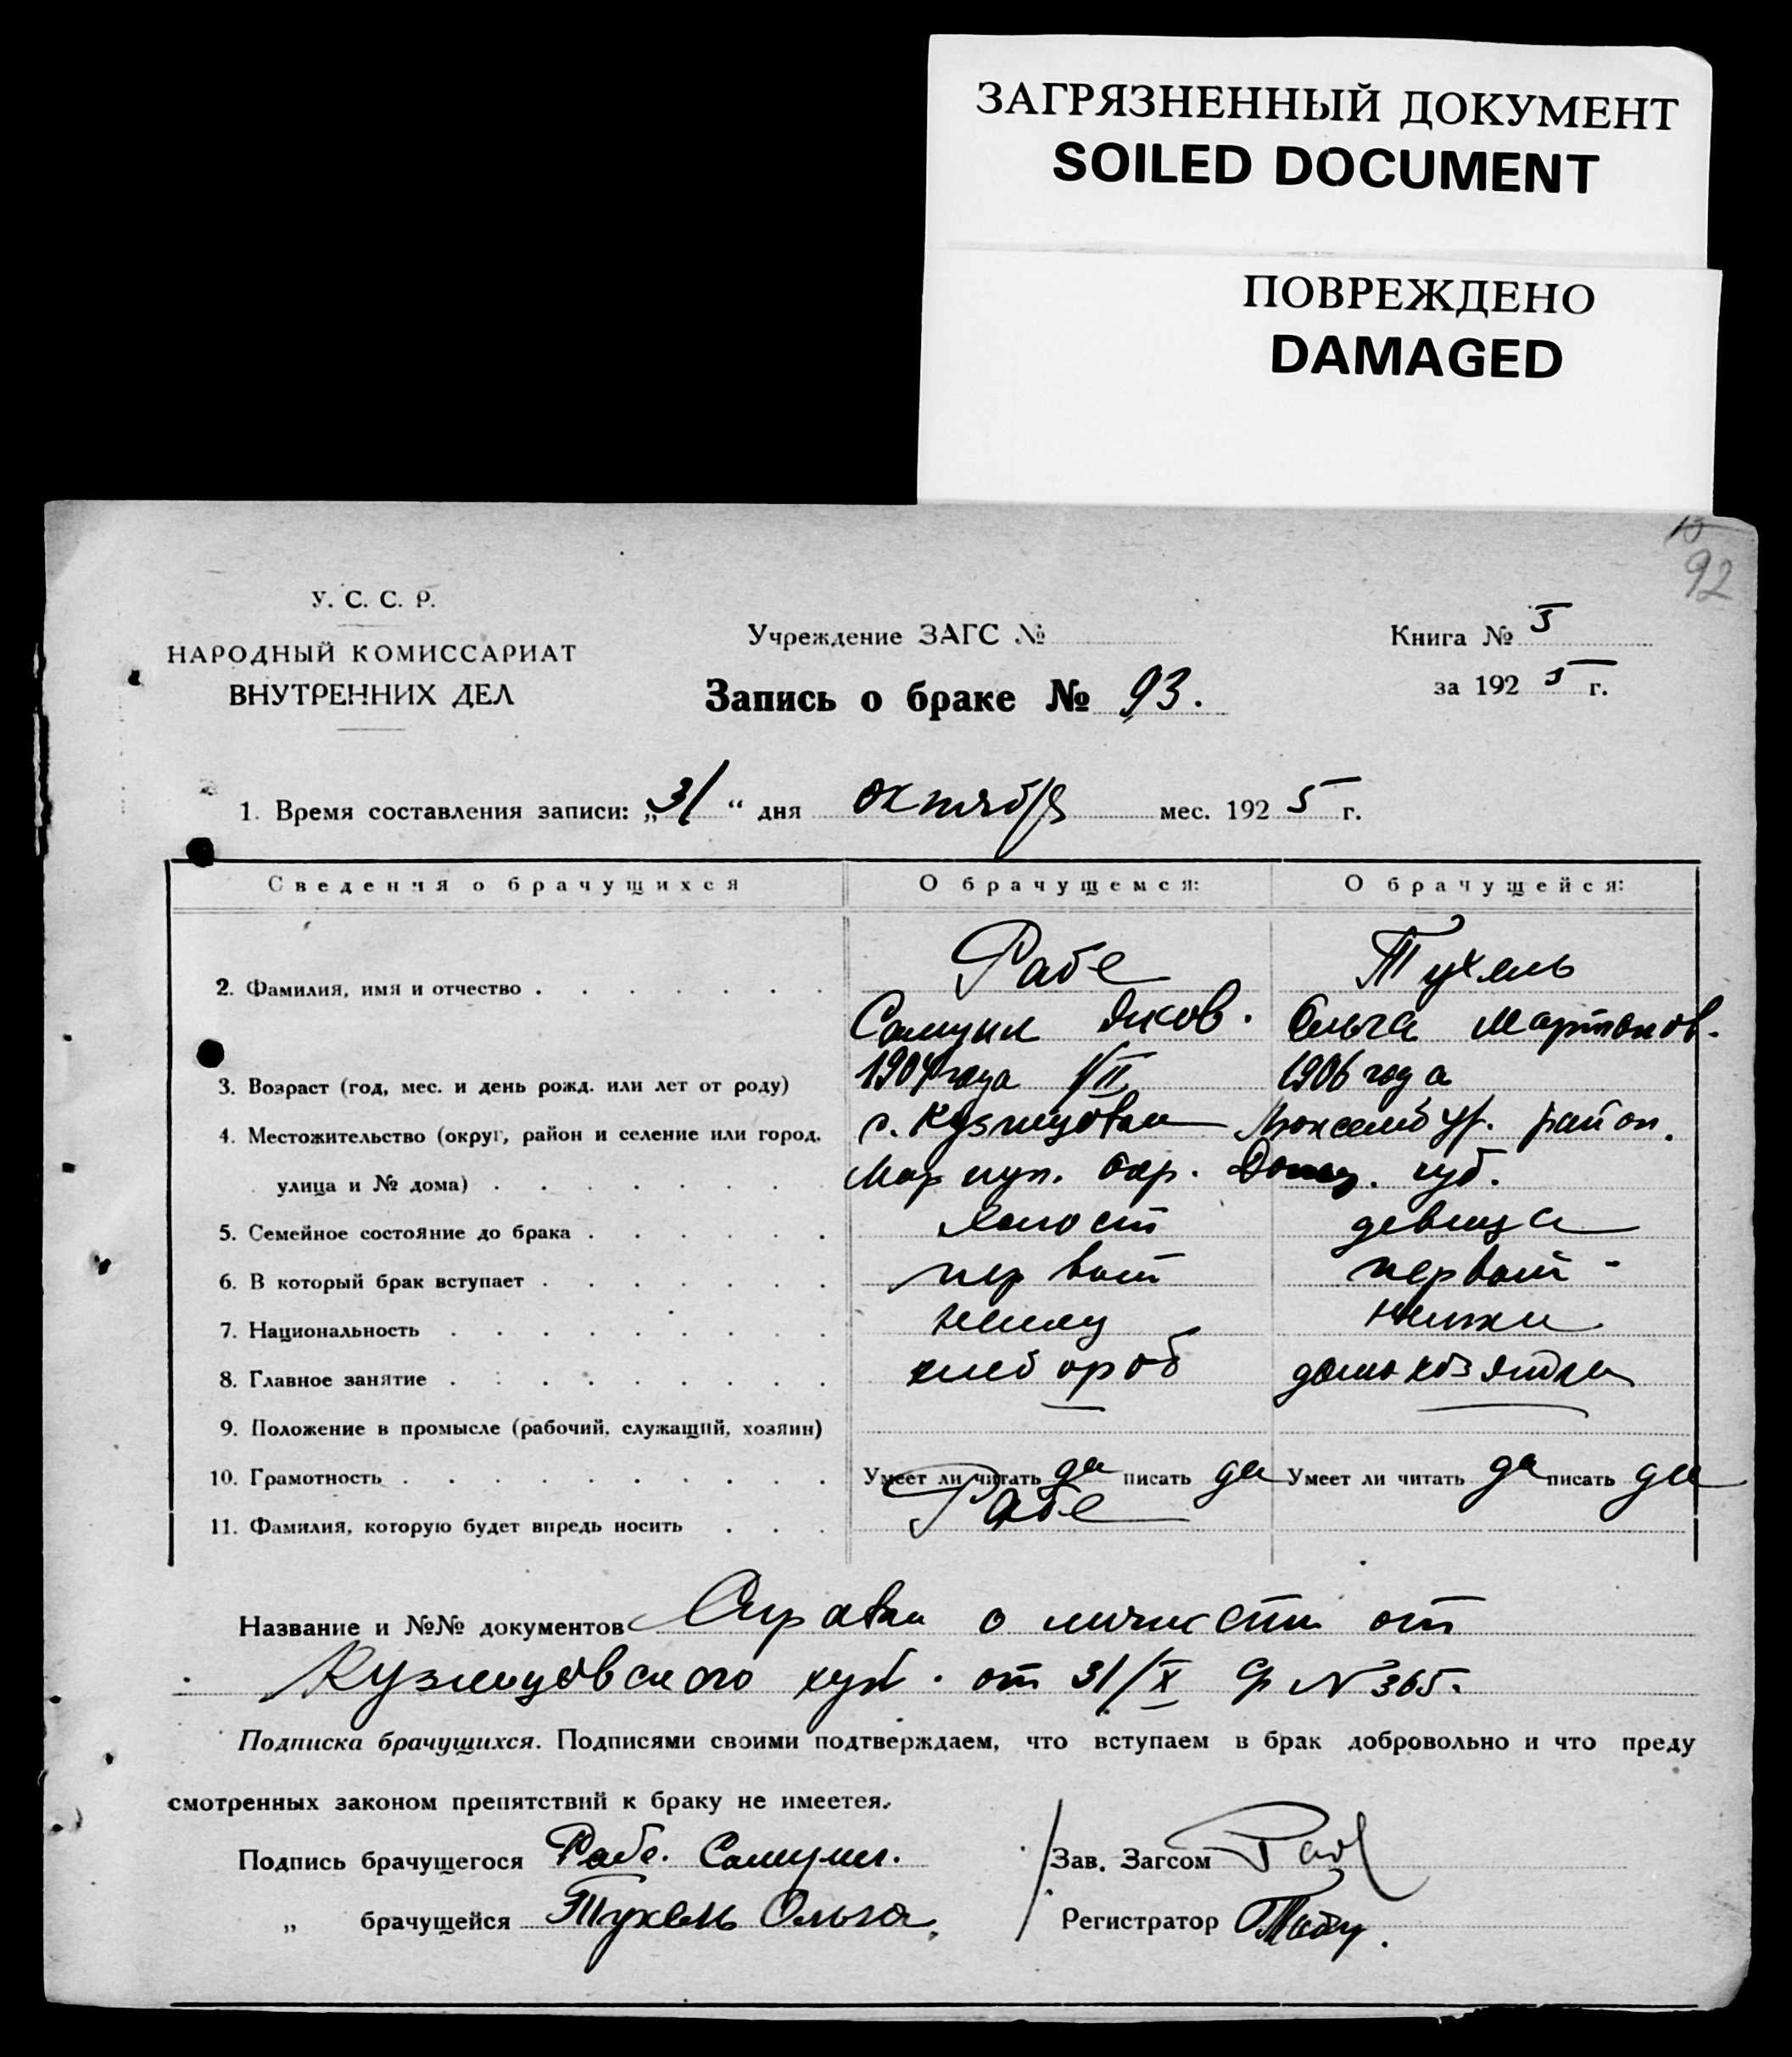 ЗАГРЯЗНЕННЫЙ ДОКУМЕНТ
SOILED DOCUMENT
ПОВРЕЖДЕНО
DAMAGED
92
У. С. С. Р.
НАРОДНЫЙ КОМИССАРИАТ
ВНУТРЕННИХ ДЕЛ
Учреждение ЗАГС №
Книга № 5
за 192 5 г.
Запись о браке № 93.
1. Время составления записи: „31“ дня октября мес. 192 5 г.
Сведения о брачущихся О брачущемся: О брачущейся:
2. Фамилия, имя и отчество . Рабе Тухель
Самуил Яков. Ольга Мартынов.
3. Возраст (год, мес. и день рожд. или лет от роду) 1904 года 1/II 1906 года
4. Местожительство (округ, район и селение или город, с. Кузнецовка Люксембур. район.
улица и № дома) . Мариуп. окр. Донец. губ.
5. Семейное состояние до брака . холост девица
6. В который брак вступает . первый первый -
7. Национальность . немец немка
8. Главное занятие . хлебороб домохозяйка
9. Положение в промысле (рабочий, служащий, хозяин)
10. Грамотность . Умеет ли читать да писать да Умеет ли читать да писать да
11. Фамилия, которую будет впредь носить . Рабе
Название и №№ документов Справка о личности от
Кузнецовского от 31/X N 365.
Подписка брачущихся. Подписями своими подтверждаем, что вступаем в брак добровольно и что преду
смотренных законом препятствий к браку не имеется.
Подпись брачущегося Рабе. Самуил. Зав. Загсом
„ брачущейся Тухель Ольга. Регистратор